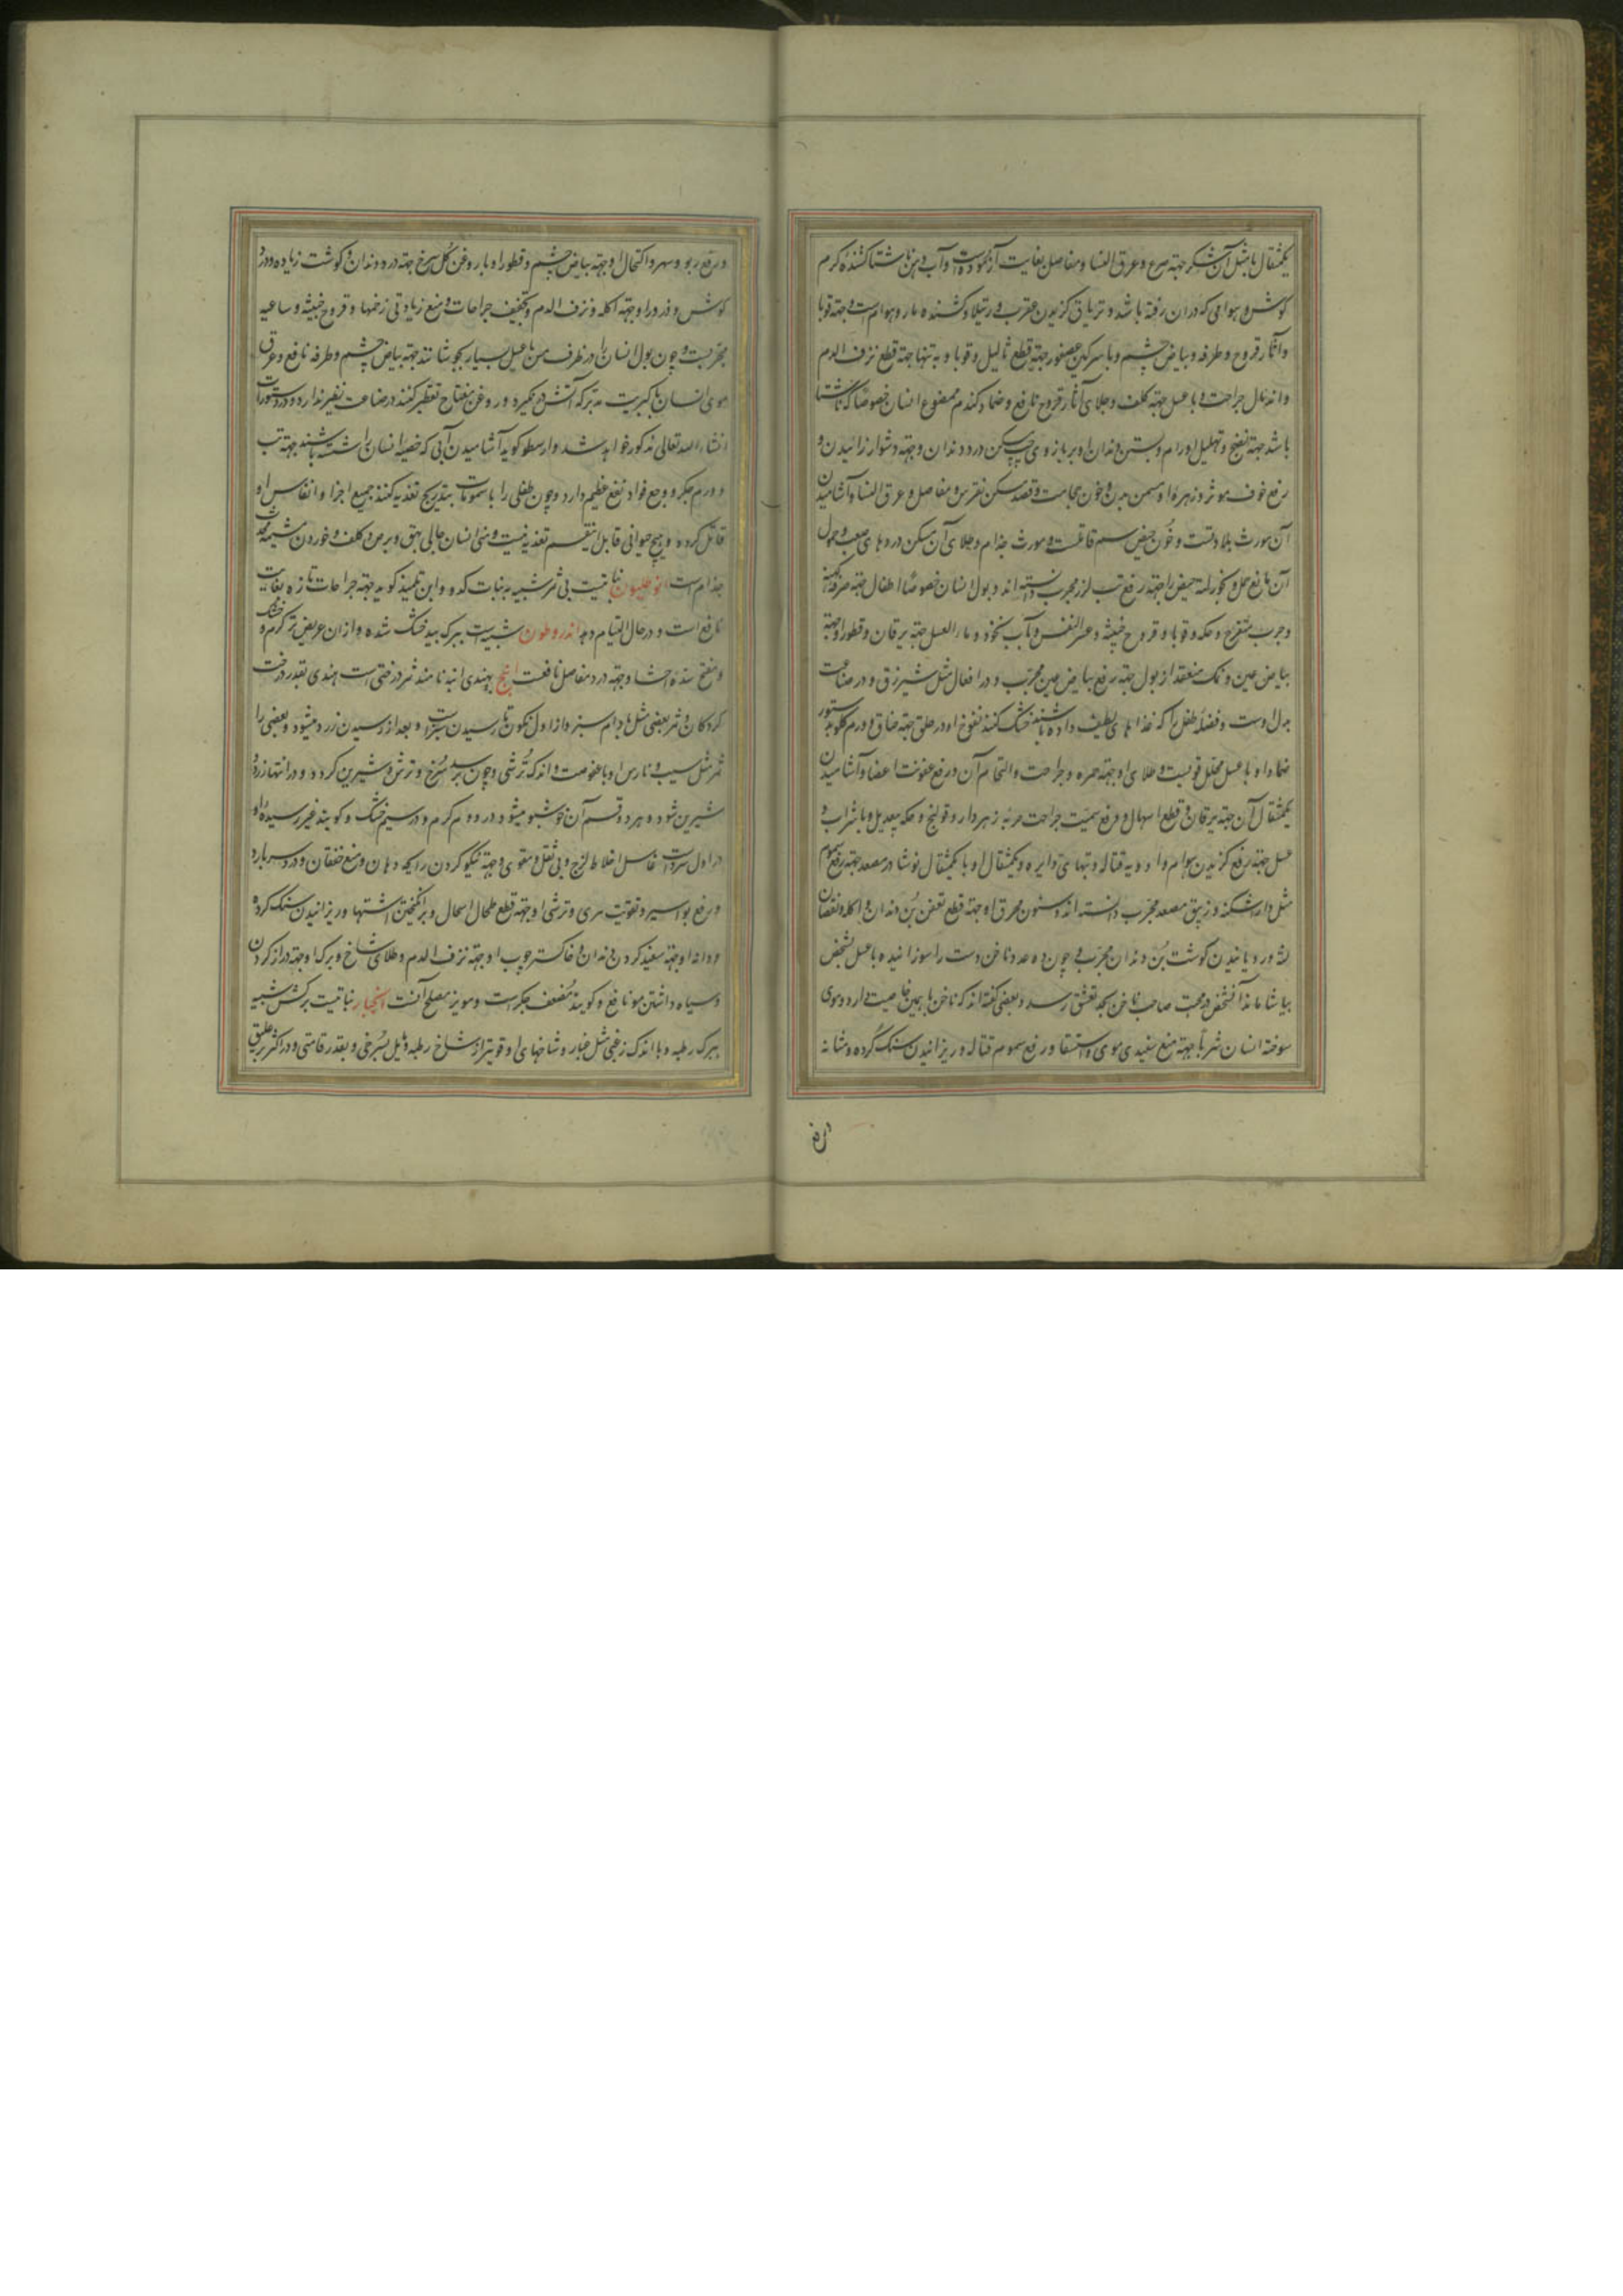 یکمثقال با مثل آن شکر جهته صرع و عرق النسا و مفاصل بغایت آزموده است و آب دهن ناشتا کشندهٔ کرم
کوش و هوامی که در ان رفته باشد و تریاق کزیدن عقرب و رتیلا و کشنده مار و هوام است و جهته قوبا
و آثار قروح و طرفه و بیاض چشم و با سرکین عصفور جهته قطع ثالیل و قوبا و به تنها جهته قطع نزف الدم
و اندمال جراحت و با عسل جهته کلف و جلای آثار قروح نافع و ضماد کندم ممضوغ انسان خصوصا که ناشتا
باشد جهته نضج و تحلیل اورام و بستن دندان او بر بازوی چپ مسکن درد دندان و جهته دشوار زائیدن و
رفع خوف موثر و زهره او مسمن بدن و خون حجامت و فصد مسکن نقرس و مفاصل و عرق النسا و آشامیدن
آن مورث بلادتست و خون حیض سم قاتلست و مورث جذام و طلای آن مسکن دردهای صعب و حمول
آن مانع حمل و بخور لته حیض را جهته رفع تب لرز مجرب دانسته اند و بول انسان خصوصا اطفال جهته
و جرب متقرح و حکه و قوبا و قروح خبیثه و عسر النفس و با آب نخود و ماء العسل جهته یرقان و قطور او جهته
بیاض عین و نمک منعقد از بول جهته رفع بیاض عین مجرب و در افعال مثل شیرزق و در صناعت
بدل اوست و فضله طفل را که غذاهای لطیف داده باشند خشک کنند نفوخ او در حلق جهته خناق و ورم کلو
ضماد او با عسل محلل قویست و طلای او جهته حمره و جراحت و التحام آن و رفع عفونت اعضا و آشامیدن
یکمثقال آن جهته یرقان و قطع اسهال و رفع سمیت جراحت حربه زهردار و قولنج و حکه بیعدیل و با شراب و
عسل جهته رفع کزیدن هوام و ادویه قتاله و تبهای دایره و یکمثقال او با یکمثقال نوشادر مصعد جهته رفع سموم
مثل دارشکنه و زیبق مصعد مجرب دانسته اند و سنون محرق او جهته قطع تعفن بن دندان و اکله و نقصان
لثه و رویانیدن کوشت بن دندان مجرب و چون ده عدد ناخن دست را سوزانیده با عسل بشخص
بیاشامانند آنشخص در محبت صاحب ناخن بحد تعشق رسد و بعضی کفته اند که ناخن پا همین خاصیت دارد و موی
سوخته انسان شربا جهته منع سفیدی موی و استسقا و رفع سموم قتاله و ریزانیدن سنک کرده و مثانه
و رفع ربو و سهر و اکتحال او جهته بیاض چشم و قطور او با روغن کل سرخ جهته درد دندان و کوشت زیاده و درد
کوش و ذرور او جهته اکله و نزف الدم و تجفیف جراحات و منع زیادتی زخمها و قروح خبیثه و ساعیه
مجربست و چون بول انسان را در ظرف مس با عسل بسیار بجوشانند جهته بیاض چشم و طرفه نافع و عرق
موی انسان با کبریت و روغن مفتاح تقطیر کنند در صناعت نظیر ندارد و در دستورات
انشاء الله تعالی مذکور خواهد شد و ارسطو کوید آشامیدن آبی که خصیه انسان را شسته باشند جهته تب
و ورم جکر و وجع فواد نفع عظیم دارد و چون طفلی را با سمومات بتدریج تغذیه کنند جمیع اجزا و انفاس او
قاتل کردد و هیچ حیوانی قابل اینقسم تغذیه نیست و منی انسان جالی بهق و برص و کلف و خوردن مشیمه
جذام است انوطیلون نباتیست بی ثمر شبیه به نبات کدو و ابن تلمیذ کوید جهته جراحات تازه بغایت
نافع است و در حال التیام دهد اندروطون شبیه است ببرک بید خشک شده و ازان عریض تر کرم و خشک
و مفتح سده احشا و جهته درد مفاصل نافعست انبج بهندی انبه نامند ثمر درختی است هندی بقدر درخت
کردکان و ثمر بعضی مثل بادام سبز و از اول تکون تا رسیدن سبز است و بعد از رسیدن زرد میشود و بعضی را
ثمر مثل سیب و نارس او با عفوصت و اندک ترشی و چون برسد سرخ و ترش و شیرین کردد و در انتها زرد و
شیرین شود و هر دو قسم آن خوشبو میشود در دوم کرم و در سیم خشک و کویند غیر رسیدهٔ او
در اول سرد است غاسل اخلاط لزج و بی ثقل و مقوی و جهته نیکو کردن رایحه دهان و منع خفقان و درد سر بارد
و رفع بواسیر و تقویت مری و ترشی او جهته قطع طحال اسهال و برانکیختن اشتها و ریزانیدن سنک کرده
و دانه او جهته سفید کردن دندان و خاکستر چوب او جهته نزف الدم و طلای شاخ و برک او جهته دراز کردن
و سیاه داشتن مو نافع و کویند مضعف جکر است و مویز مصلح آنست انجبار نباتیست برکش شبیه
ببرک رطبه و با اندک زغبی مثل غبار و شاخهای او قویتر از شاخ رطبه و مایل بسرخی و بقدر قامتی و در اکثر بر علیق